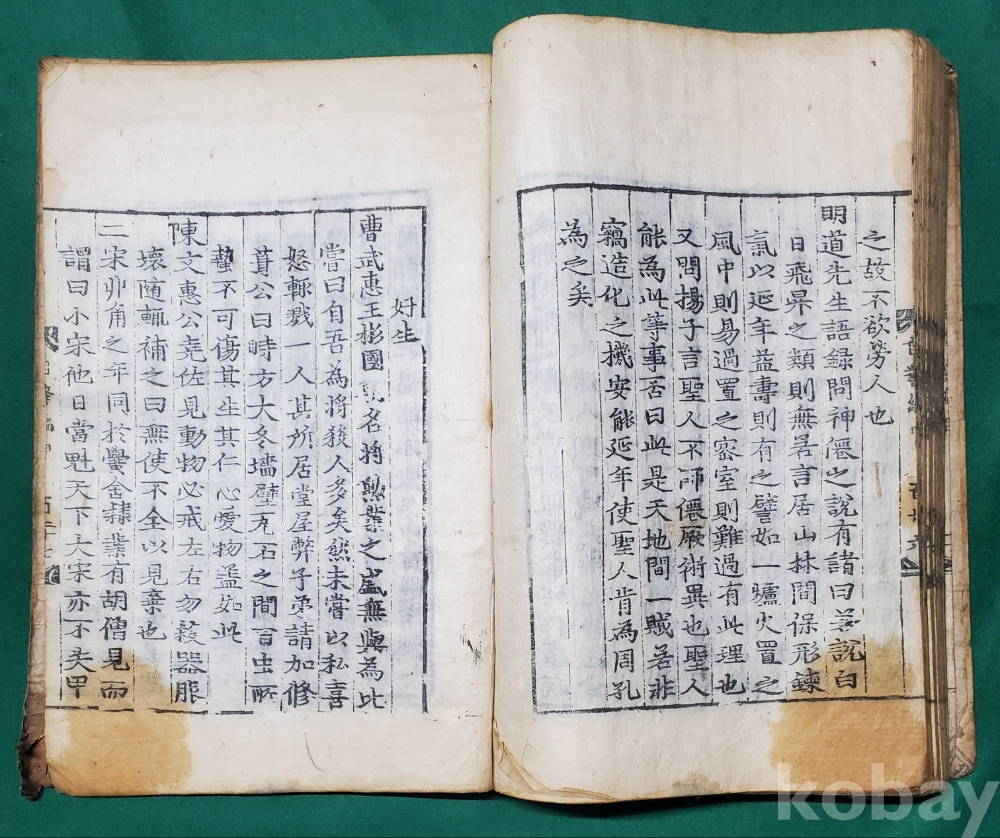 之故不欲勞人也
明道先生語録問神僊之說有諸曰若說白
日飛昇之類則無若言居山林間保形鍊
氣以延年益壽則有之譬如一爐火置之
風中則易過置之密室則難過有此理也
又問揚子言聖人不師僊厥術異也聖人
能為此等事否曰此是天地間一賊若非
竊造化之機安能延年使聖人肯為周孔
為之矣
好生
曹武惠王彬國朝名將勲業之盛無與為比
嘗曰自吾為將殺人多矣然未嘗以私喜
怒輙戮一人其所居堂屋弊子弟請加修
葺公曰時方大冬墻壁瓦石之間百虫所
蟄不可傷其生其仁心愛物盖如此
陳文惠公堯佐見動物必戒左右勿殺器服
壞随輙補之曰無使不全以見棄也
二宋丱角之年同於黌舍隷業有胡僧見而
謂曰小宋他日當魁天下大宋亦不失甲
kobay